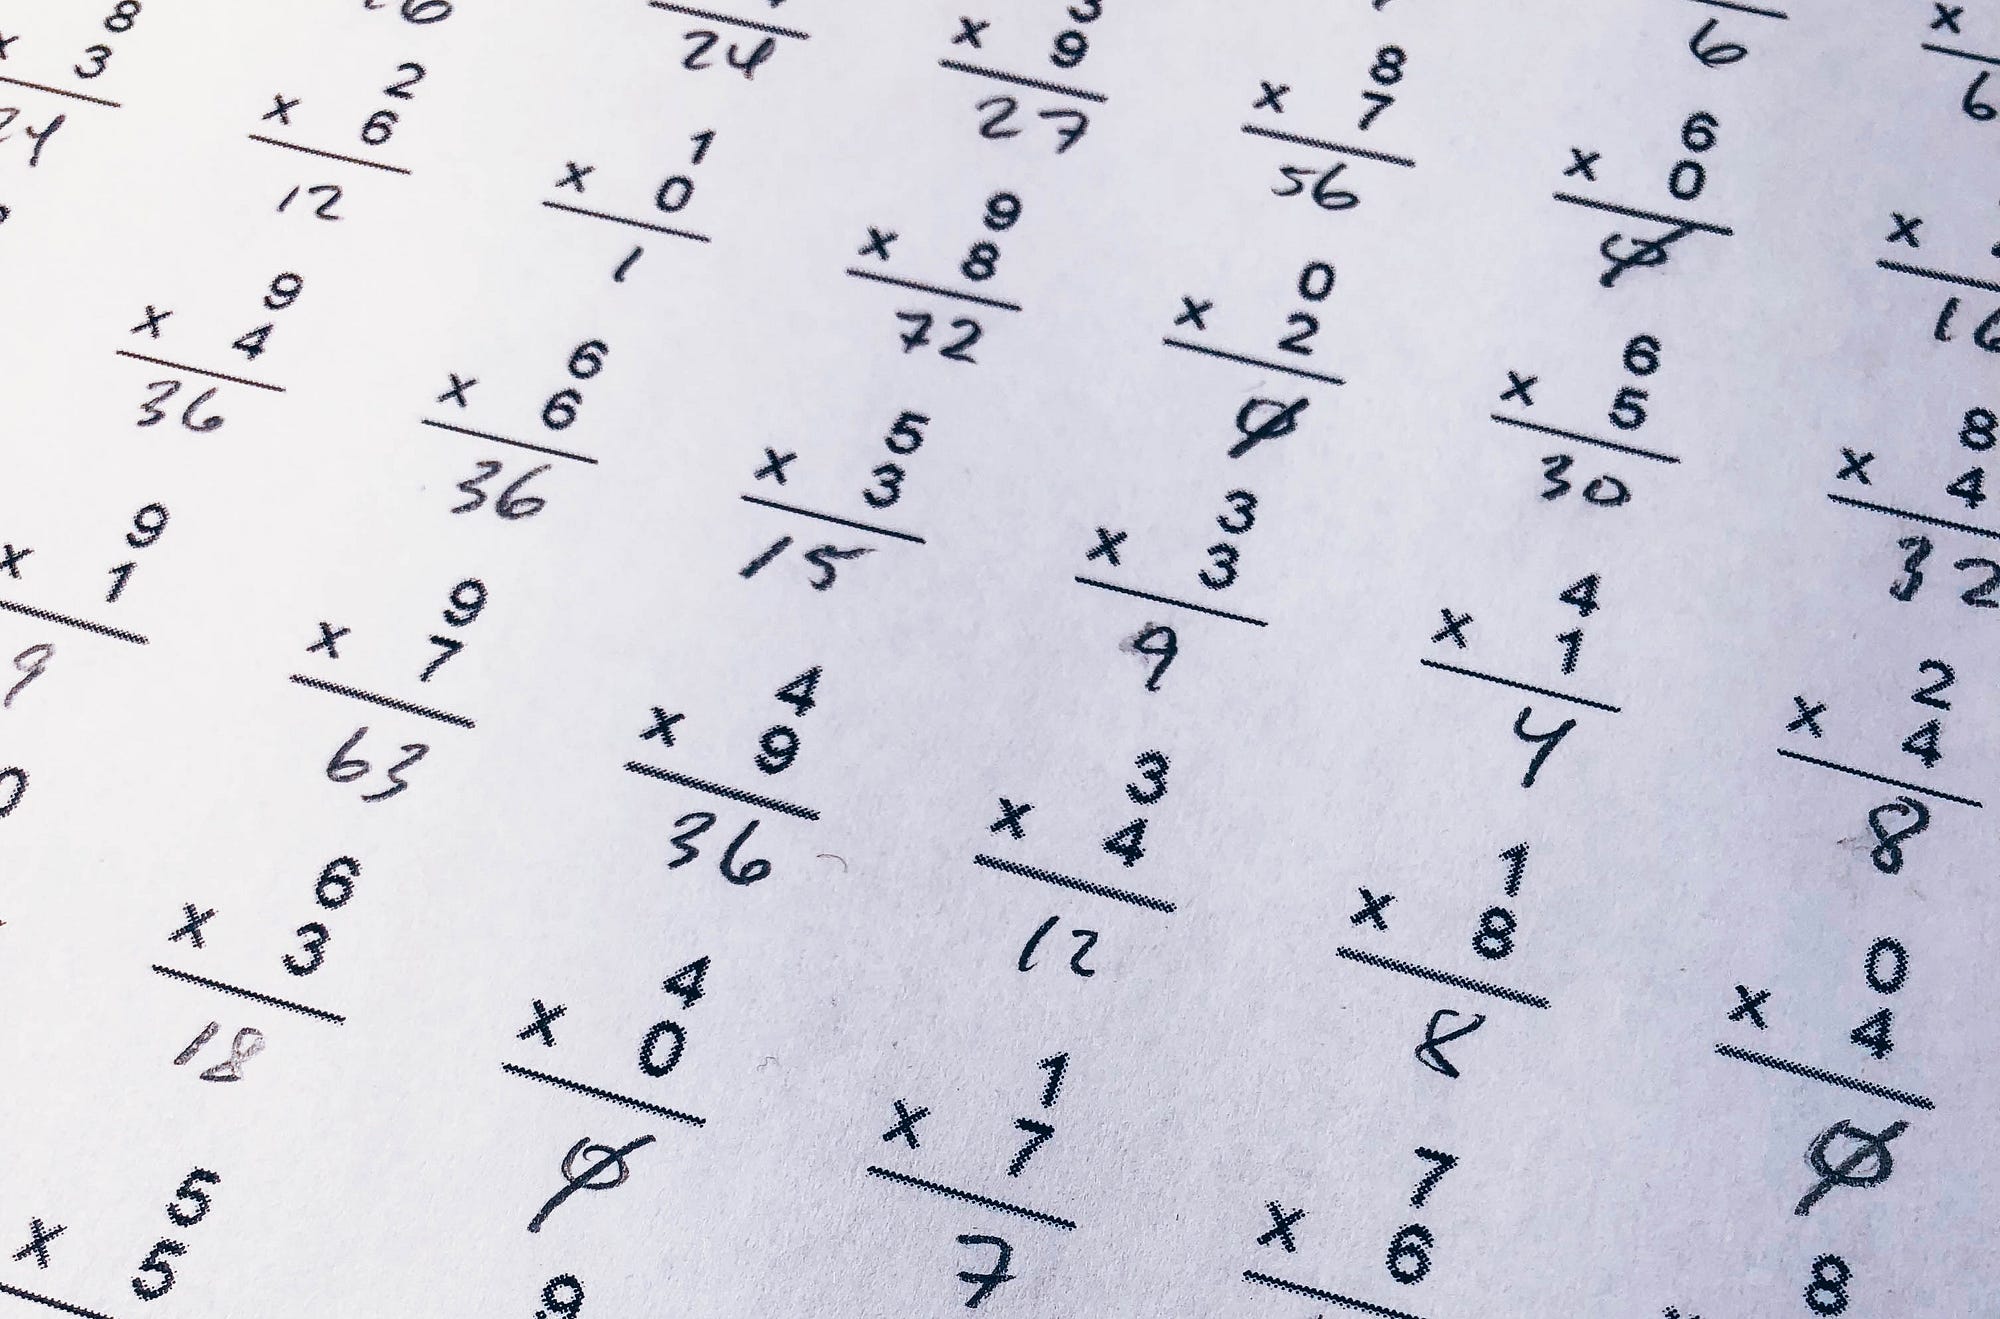 6
x
6
24
3
x 9
27
8
x 7
56
6
x 0
0
x
16
8
x 3
24
2
x 6
12
1
x 0
1
9
x 8
72
0
x 2
0
6
x 5
30
8
x 4
32
9
x 4
36
6
x 6
36
5
x 3
15
3
x 3
9
4
x 1
4
2
x 4
8
9
x 1
9
9
x 7
63
4
x 9
36
3
x 4
12
1
x 8
8
0
x 4
0
0
6
x 3
18
4
x 0
0
1
x 7
7
7
x 6
8
5
x 5
9